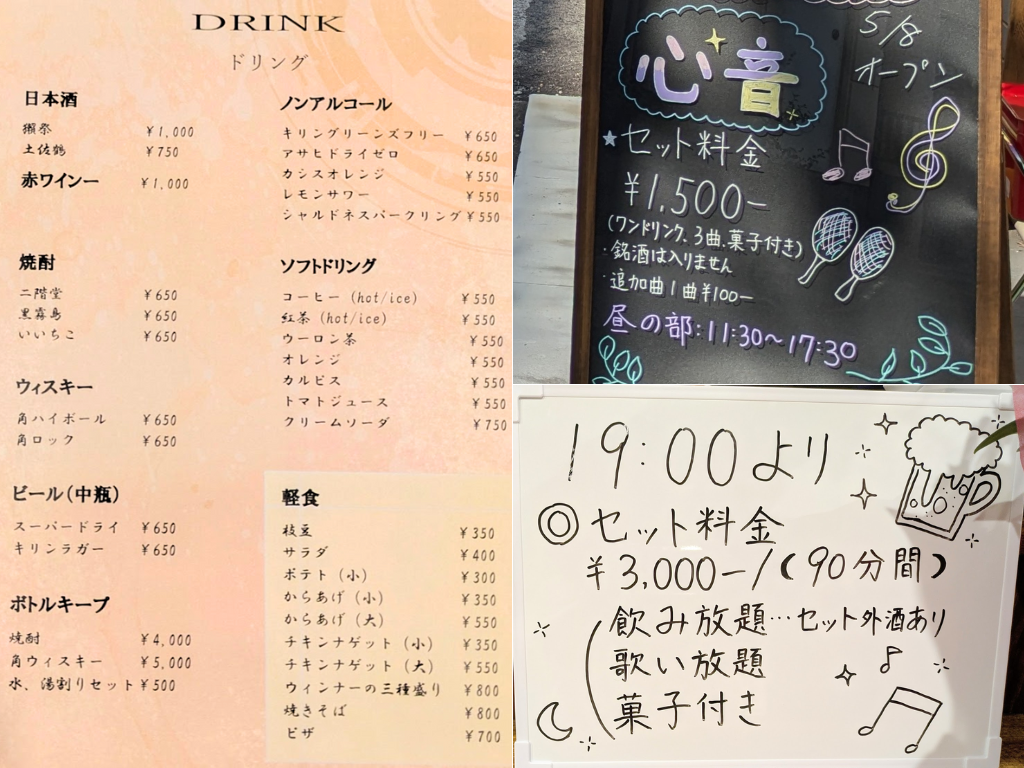 DRINK
ドリング
日本酒
獺祭 ¥1,000
土佐鶴 ¥750
赤ワイン― ¥1,000
焼酎
二階堂 ¥650
黒霧島 ¥650
いいちこ ¥650
ウィスキー
角ハイボール ¥650
角ロック ¥650
ビール(中瓶)
スーパードライ ¥650
キリンラガー ¥650
ボトルキープ
焼酎 ¥4,000
角ウィスキー ¥5,000
水、湯割りセット ¥500
ノンアルコール
キリングリーンズフリー ¥650
アサヒドライゼロ ¥650
カシスオレンジ ¥550
レモンサワー ¥550
シャルドネスパークリング ¥550
ソフトドリング
コーヒー (hot/ice) ¥550
紅茶 (hot/ice) ¥550
ウーロン茶 ¥550
オレンジ ¥550
カルピス ¥550
トマトジュース ¥550
クリームソーダ ¥750
軽食
枝豆 ¥350
サラダ ¥400
ポテト (小) ¥300
からあげ (小) ¥350
からあげ (大) ¥550
チキンナゲット (小) ¥350
チキンナゲット (大) ¥550
ウィンナーの三種盛り ¥800
焼きそば ¥800
ピザ ¥700
5/8
オープン
心音
★セット料金
¥1,500-
(ワンドリンク、3曲、菓子付き)
・銘酒は入りません
・追加曲1曲¥100-
昼の部:11:30~17:30
19:00より
◎セット料金
¥3,000-/(90分間)
飲み放題…セット外酒あり
歌い放題
菓子付き